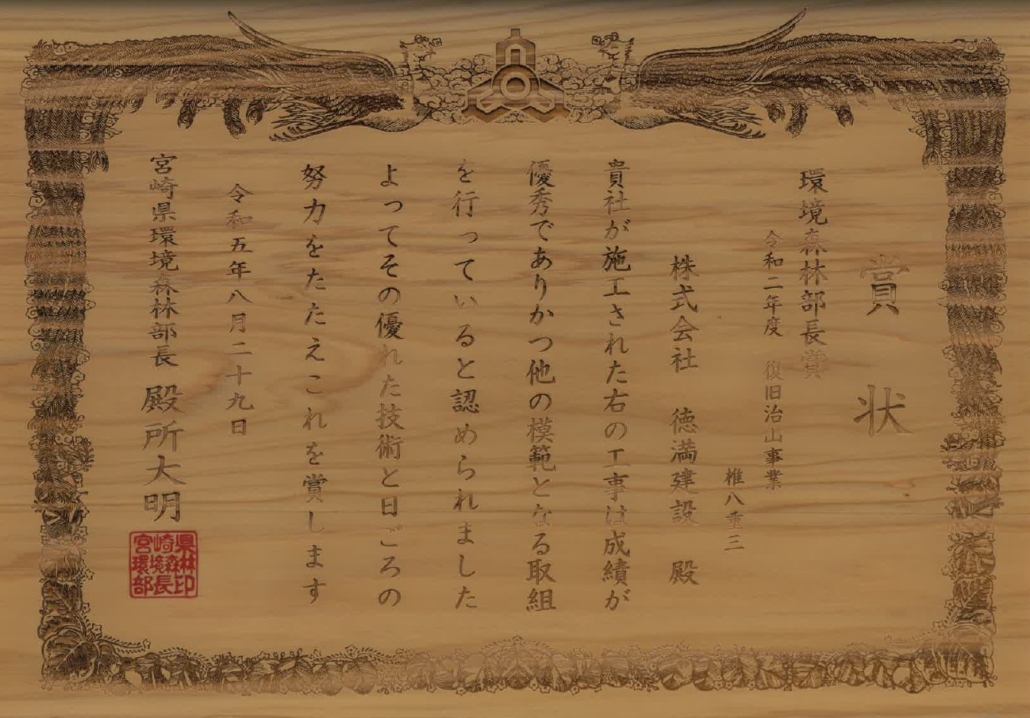 賞状
環境森林部長賞
令和二年度 復旧治山事業
椎八重三
株式会社 徳満建設 殿
貴社が施工された右の工事は成績が
優秀でありかつ他の模範となる取組
を行っていると認められました
よってその優れた技術と日ごろの
努力をたたえこれを賞します
令和五年八月二十九日
宮崎県環境森林部長 殿所大明
県林印
崎境森長
宮環部